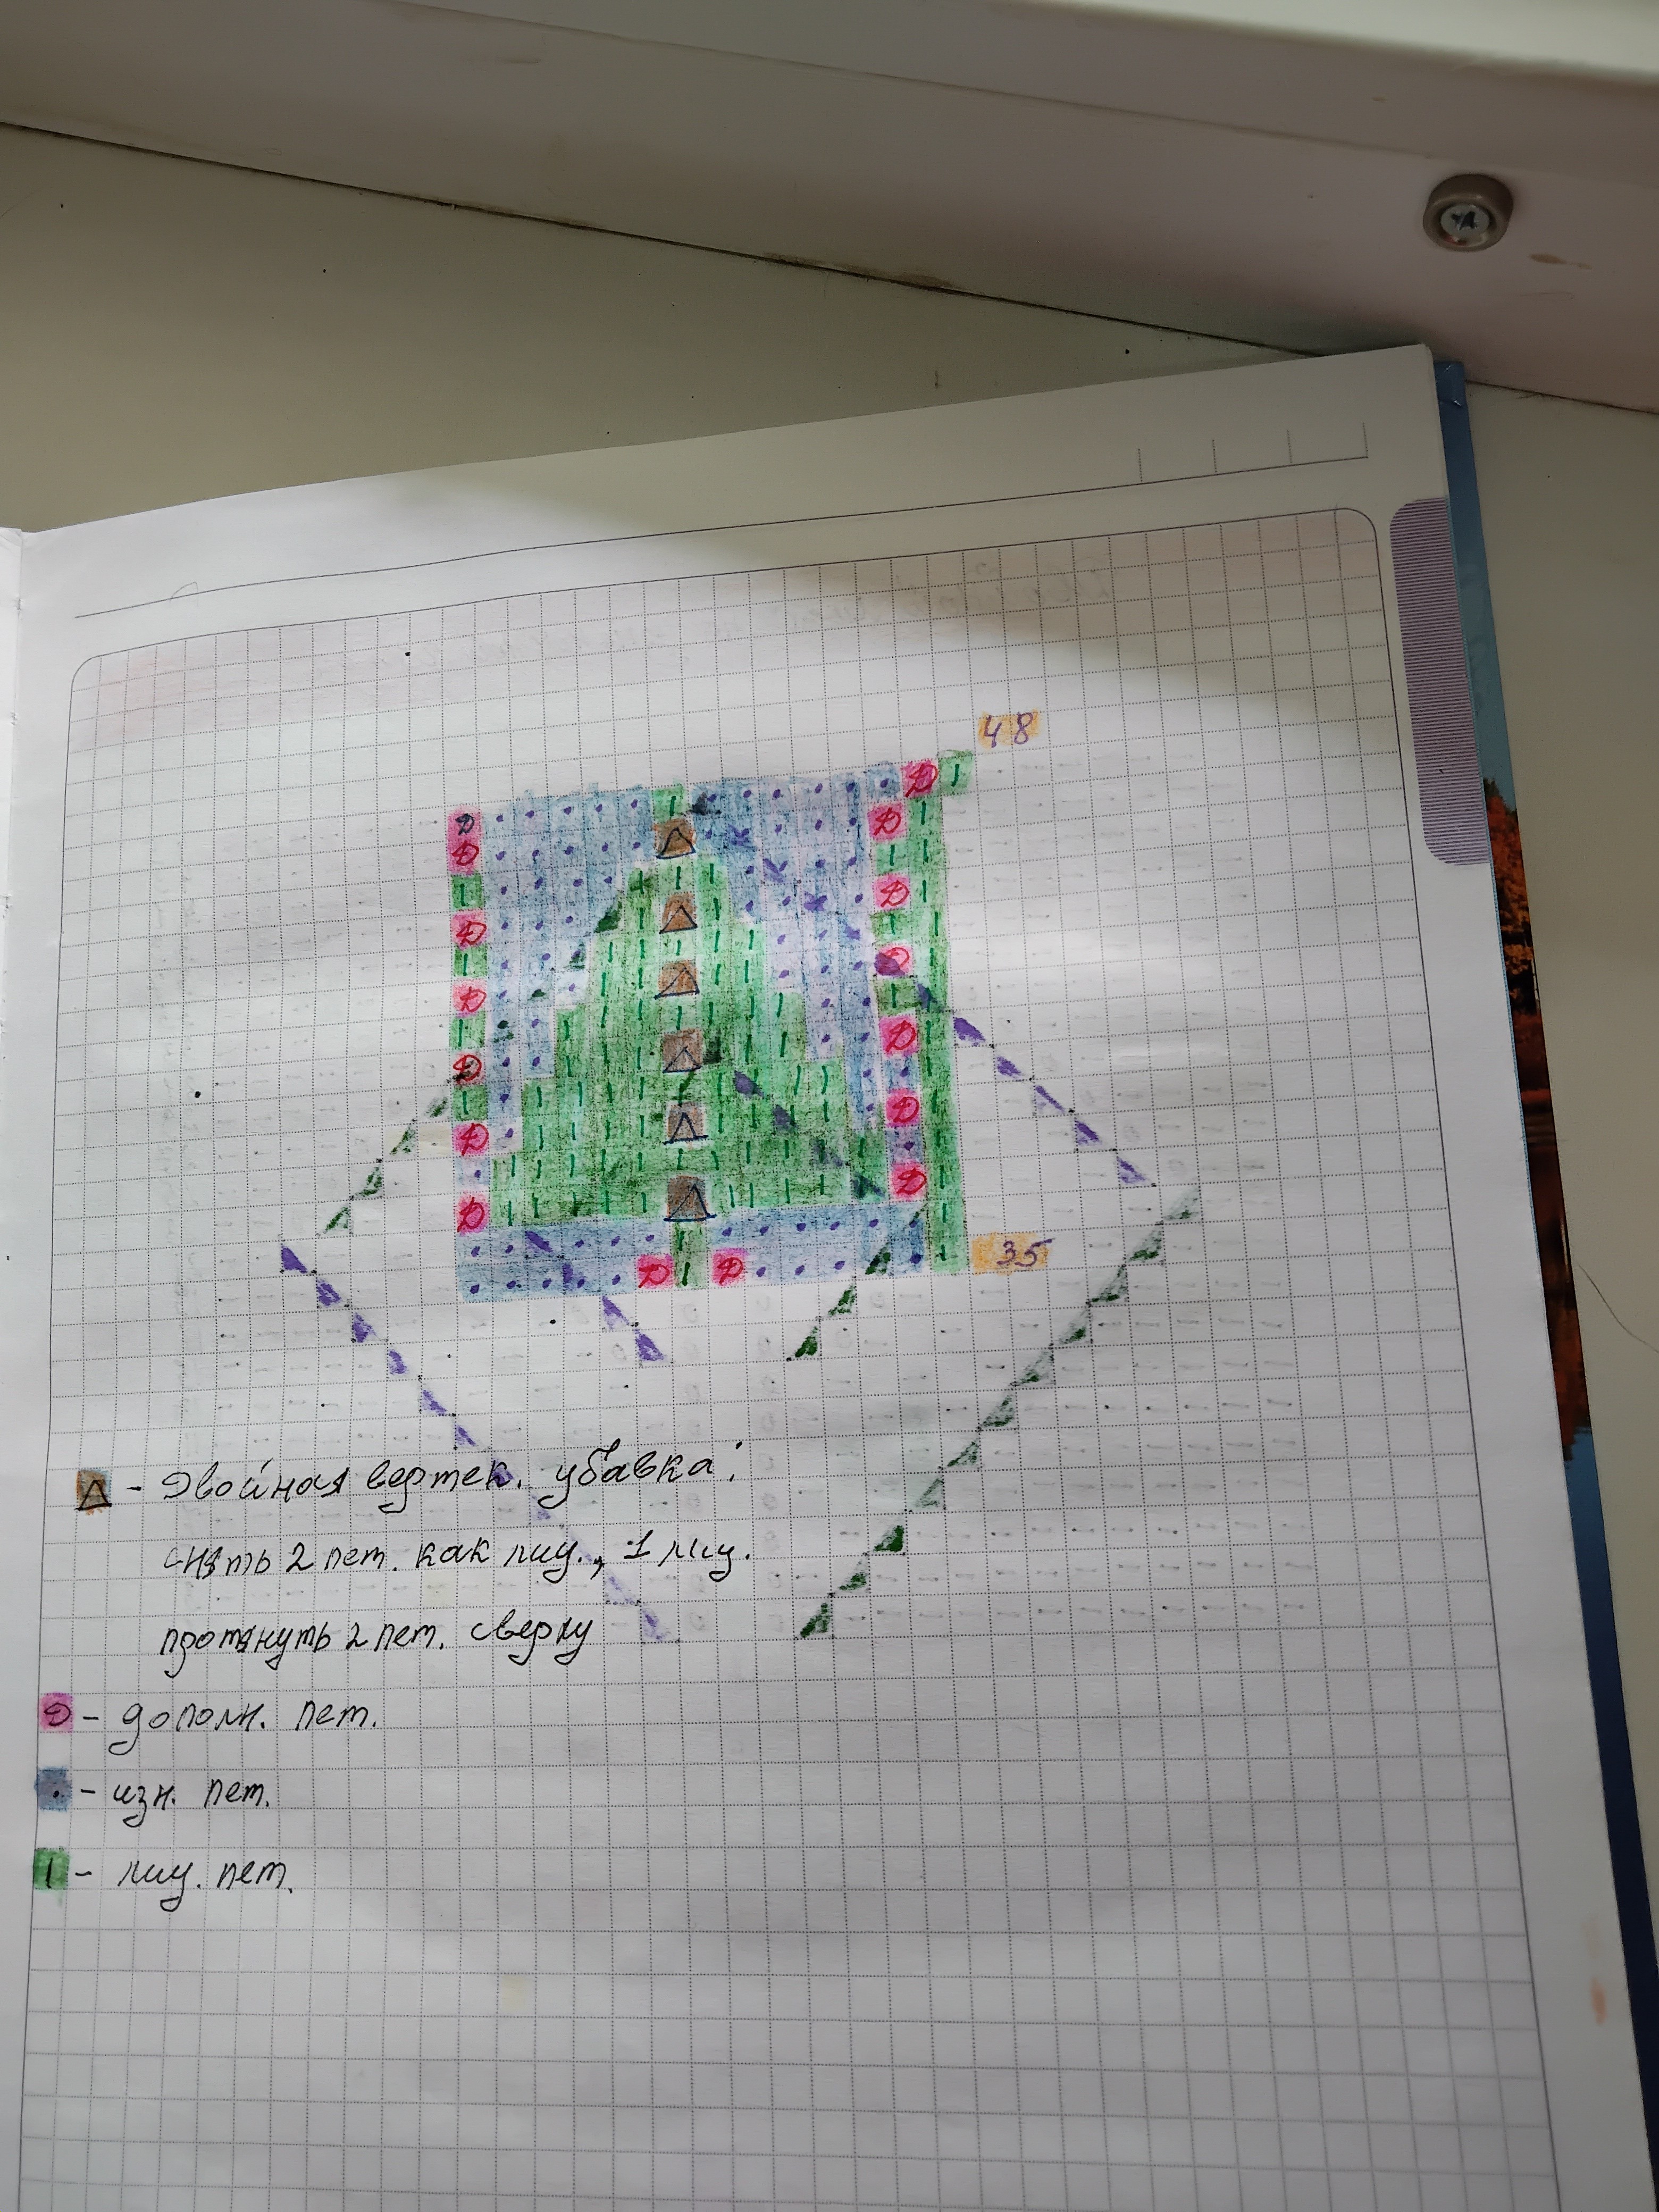 48
35
△ - Двойная вертек. убавка:
снять 2 пет. как лиц., 1 лиц.
протянуть 2 пет. сверху
Д - дополн. пет.
· - изн. пет.
| - лиц. пет.